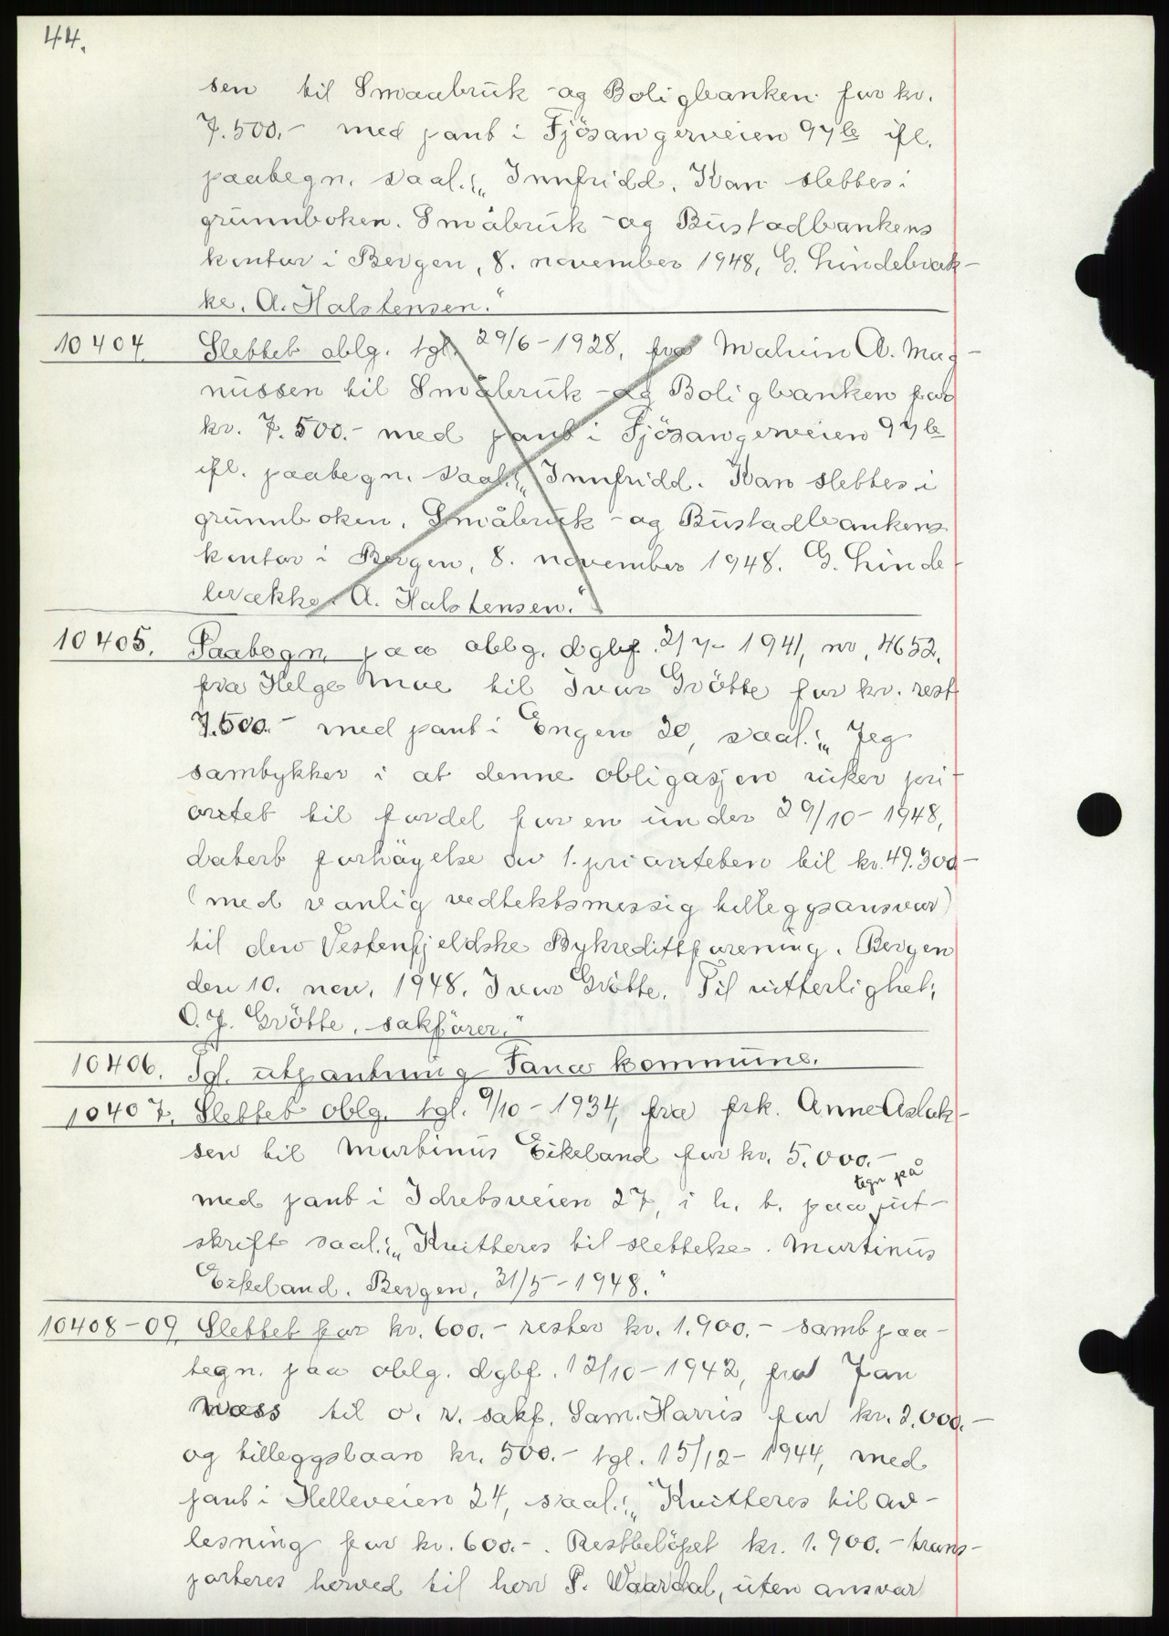 44.
sen til Smaabruk -og Boligbanken for kr.
7.500.- med pant i Fjösangerveien 97 le ifl.
paategn. saal.: „Innfridd. Kan slettes i
grunnboken. Småbruk -og Bustadbankens
kontor i Bergen, 8. november 1948, G. Lindebræk-
ke. A. Halstensen."
10404. Slettet oblg. tgl. 29/6-1928, fra Malvin A. Mag-
nussen til Småbruk -og Boligbanken for
kr. 7.500.- med pant i Fjösangerveien 97 le
ifl. paategn. saal.: „Innfridd. Kan slettes i
grunnboken. Småbruk -og Bustadbankens
kontor i Bergen, 8. november 1948. G. Linde-
brække. A. Halstensen."
10405. Paategn. paa oblg. dgbf. 2/7-1941, nr. 4652,
fra Helge Moe til Ivar Grötte for kr. rest
7.500.- med pant i Engen 20, saal.: „Jeg
samtykker i at denne obligasjon viker pri-
oritet til fordel for en under 29/10-1948,
datert forhöyelse av 1. prioriteten til kr. 49.300-
(med vanlig vedtektsmessig tilleggsansvar)
til den Vestenfjeldske Bykredittforening. Bergen
den 10. nov. 1948. Ivar Grötte. Til vitterlighet;
O. J. Grötte, sakförer."
10406. Tgl. utpantning Fana kommune.
10407. Slettet oblg. tgl. 9/10-1934, fra frk. Anne Aslak-
sen til Martinus Eikeland for kr. 5.000.-
med pant i Idretsveien 27, i h. t. paategn på ut-
skrift saal.: „Kvitteres til slettelse. Martinus
Eikeland. Bergen, 31/5-1948."
10408-09. Slettet for kr. 600.- rester kr. 1.900.- samt paa-
tegn. paa oblg. dgbf. 12/10-1942, fra Jan
Wæss til o. r. sakf. Sam. Harris for kr. 2.000.-
og tilleggslaan kr. 500.- tgl. 15/12-1944, med
pant i Helleveien 24, saal.: „Kvitteres til av-
lesning for kr. 600.-. Restbelöpet kr. 1.900.- trans-
porteres herved til herr P. Waardal, uten ansvar